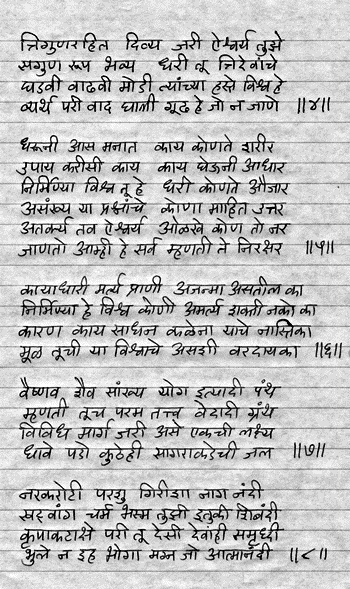 त्रिगुणरहित दिव्य जरी ऐश्वर्य तुझे
सगुण रूप भव्य धरी तू त्रिदेवांचे
घडवी वाढवी मोडी त्यांच्या हस्ते विश्व हे
व्यर्थ परी वाद घाली मूढ हे जो न जाणे ॥४॥
धरूनी आस मनात काय कोणते शरीर
उपाय करीसी काय काय घेऊनी आधार
निर्मिण्या विश्व तू हे धरी कोणते औजार
असंख्य या प्रश्नांचे कोणा माहित उत्तर
अतर्क्य तव ऐश्वर्य ओळखे कोण तो नर
जाणतो आम्ही हे सर्व म्हणती ते निरक्षर ॥५॥
कायाधारी मर्त्य प्राणी अजन्मा असतील का
निर्मिण्या हे विश्व कोणी अमर्त्य शक्ती नको का
कारण काय साधन कळेना याचे नास्तिका
मूळ तूची या विश्वाचे असशी वरदायका ॥६॥
वैष्णव शैव सांख्य योग इत्यादी पंथ
म्हणती तूच परम तत्त्व वेदादी ग्रंथ
विविध मार्ग जरी असे एकची लक्ष्य
धावे पडो कुठेही सागराकडेची जल ॥७॥
नरकरोटी परशु गिरीशा नाग नंदी
खट्वांग चर्म भस्म तुझी इतुकी शिबंदी
कृपाकटाक्षे परी तू देसी देवांही समृद्धी
भुले न इह भोगा मग्न जो आत्मानंदी ॥८॥